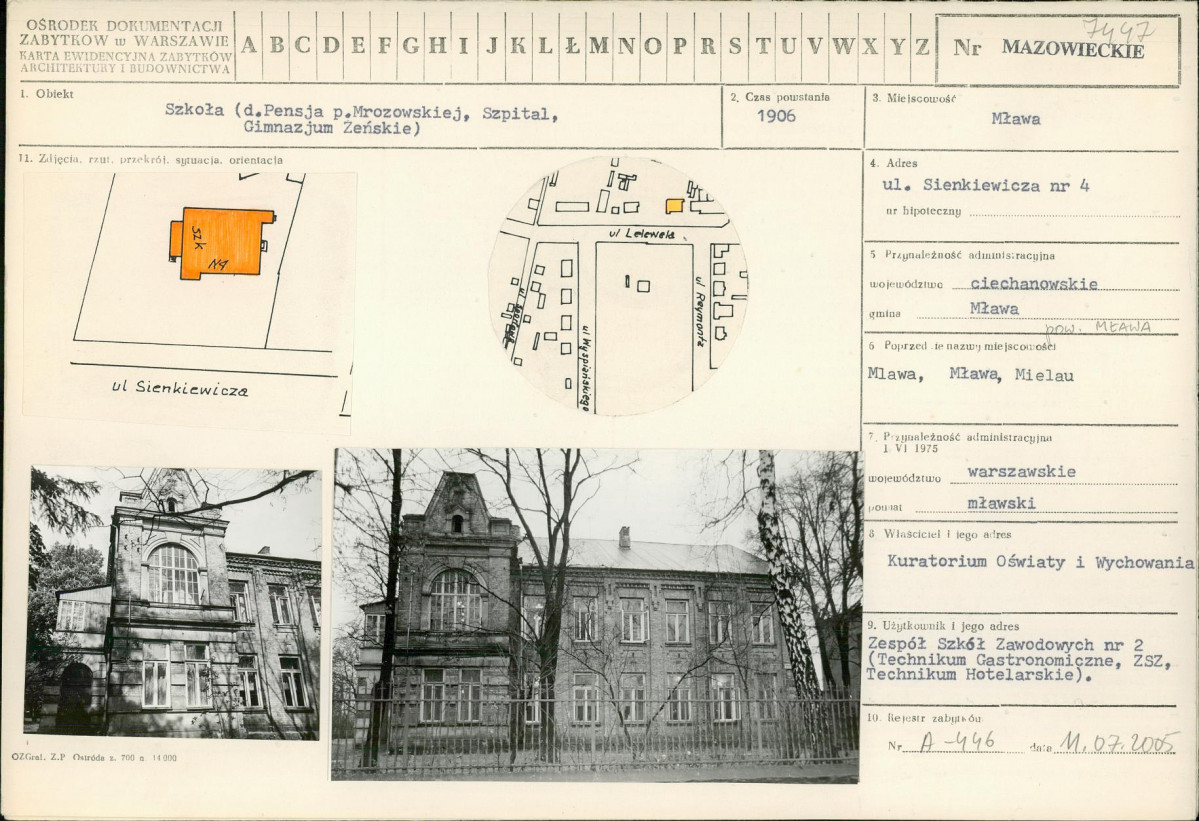 OŚRODEK DOKUMENTACJI
ZABYTKÓW w WARSZAWIE
KARTA EWIDENCYJNA ZABYTKÓW
ARCHITEKTURY I BUDOWNICTWA
A B C D E F G H I J K L Ł M N O P R S T U V W X Y Z
Nr MAZOWIECKIE
7447
1. Obiekt
Szkoła (d.Pensja p.Mrozowskiej, Szpital,
Gimnazjum Żeńskie)
2. Czas powstania
1906
3. Miejscowość
Mława
11. Zdjęcia, rzut, przekrój, sytuacja, orientacja
szk
N4
ul Sienkiewicza
ul Lelewela
ul Reymonta
ul Wyspiańskiego
4. Adres
ul. Sienkiewicza nr 4
nr hipoteczny
5 Przynależność administracyjna
województwo ciechanowskie
gmina Mława
pow. MŁAWA
6 Poprzednie nazwy miejscowości
Mlawa, Mława, Mielau
7. Przynależność administracyjna
1 VI 1975
województwo warszawskie
powiat mławski
8 Właściciel i jego adres
Kuratorium Oświaty i Wychowania
9. Użytkownik i jego adres
Zespół Szkół Zawodowych nr 2
(Technikum Gastronomiczne, ZSZ,
Technikum Hotelarskie).
10. Rejestr zabytków
Nr A-446 data 11.07.2005
OZGraf. Z.P Ostróda z. 700 n 14 000